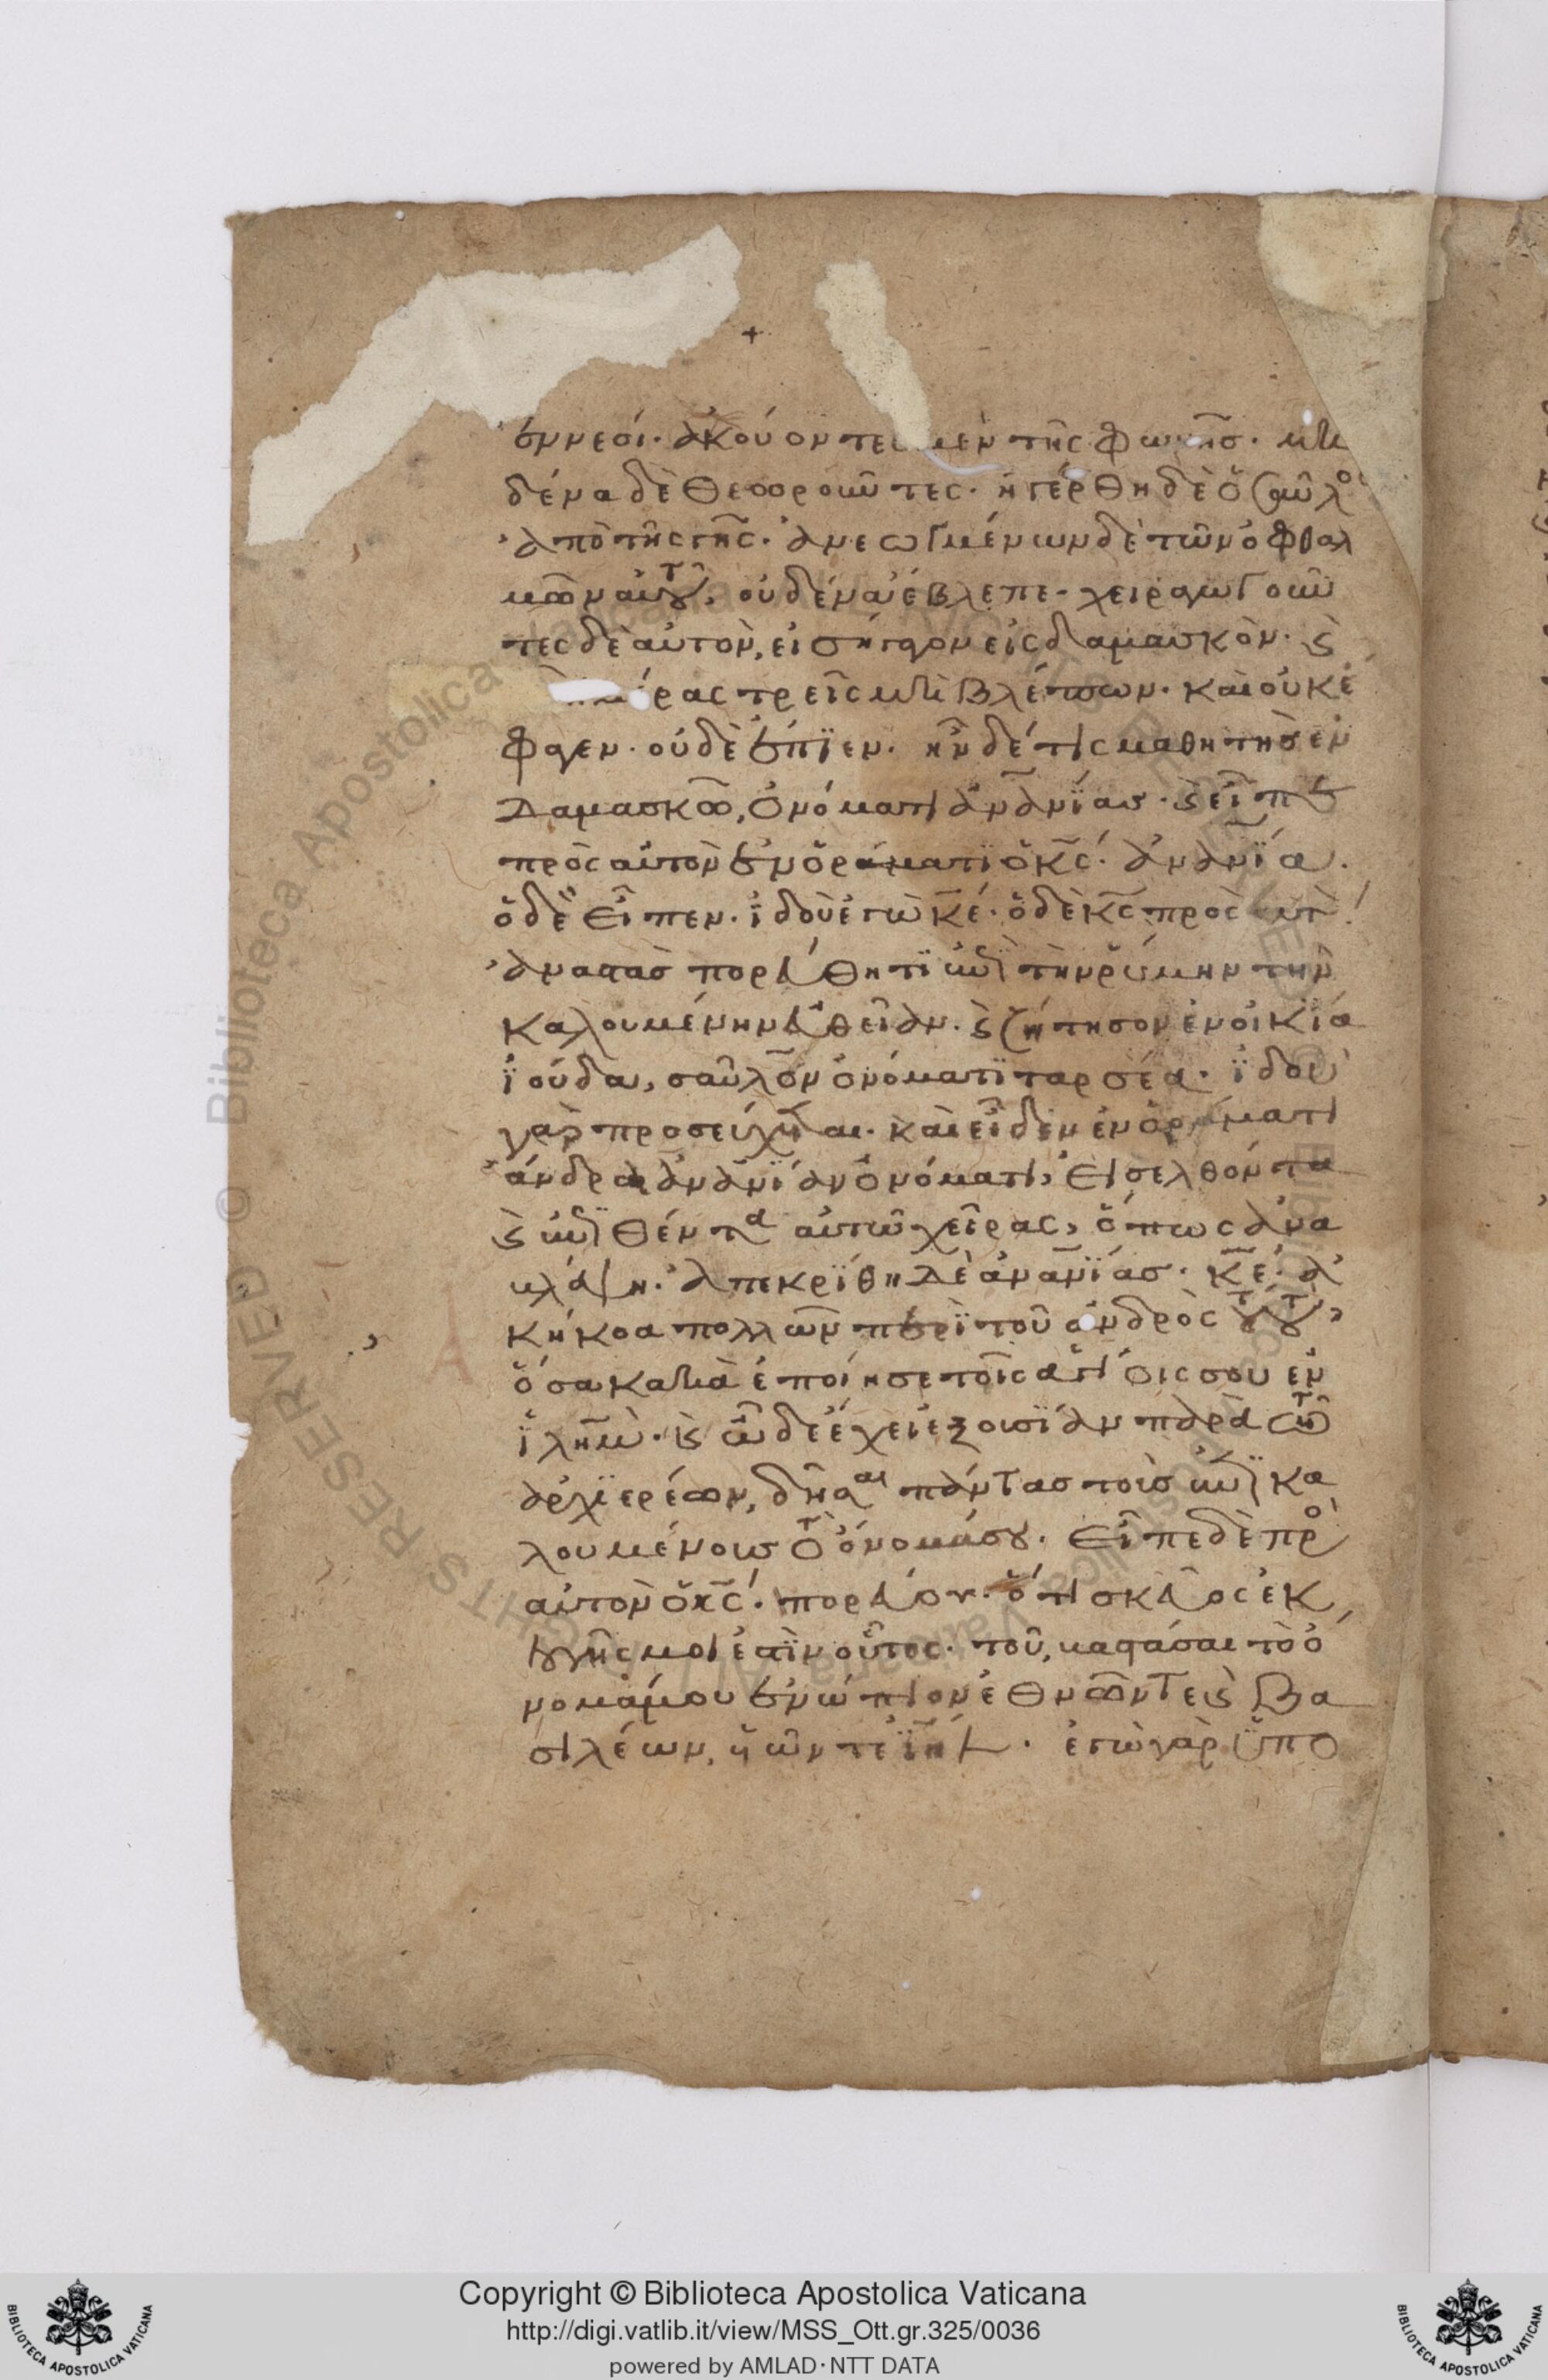 +
ἐννεοί· ἀκούοντες μὲν τῆς φωνῆσ· μη
δένα δὲ θεοροῦντες· ἠγέρθη δὲ ὁ σαῦλος
ἀπὸ τῆς γῆς· ἀνεωγμένων δὲ τῶν ὀφθαλ
μῶν αὐτοῦ, οὐδένα ἔβλεπε· χειραγωγοῦν
τες δὲ αὐτὸν, εἰσήγαγον εἰς δαμασκὸν· ϗ
ἦν ἡμέρας τρεῖς μὴ βλέπων· καὶ οὐκ ἔ
φαγεν· οὐδὲ ἔπϊεν· ἦν δέ τις μαθητὴσ ἐν
δαμασκῶ, ὀνόματι ἀνανΐασ· ϗ εἶπε
πρὸς αὐτὸν ἐν ὁράματϊ ὁ κ̅ς̅· ἀνανΐα·
ὁ δὲ εἶπεν· ἰδοὺ ἐγὼ κ̅ε̅· ὁ δὲ κ̅ς̅ πρὸς αὐτὸ
ἀναστὰσ πορεύθητϊ ἐπὶ τὴν ῥύμην τὴν
καλουμένην εὐθεῖαν· ϗ ζήτησον ἐν οἰκΐα
ἰούδα, σαῦλον ὀνόματϊ ταρσέα· ἰδοὺ
γὰρ προσεύχεται· καὶ εἶδεν ἐν ὁράματι
ἄνδρα ἀνανΐαν ὀνόματι, εἰσελθόντα
ϗ ἐπιθέντα αὐτῶ χεῖρας, ὅπως ἀνα
βλέψη· ἀπεκρΐθη δὲ ἀνανΐασ· κ̅ε̅· ἀ
κήκοα πολλῶν περὶ τοῦ ἀνδρὸς τούτου,
ὅσα κακὰ ἐποίησε τοῖς ἁγίοις σου ἐν
ϊλ̅η̅μ̅· ϗ ὧδε ἔχει ἐξουσΐαν παρὰ τῶν
ἀρχϊερέων, δῆσαι πάντασ τοὺσ ἐπικα
λουμένουσ τὸ ὄνομά σου· εἶπε δὲ πρὸς
αὐτὸν ὁ κ̅ς̅· πορεύου· ὅτι σκεῦος ἐκ
λογῆς μοι ἐστὶν οὗτος· τοῦ, βαστάσαι τὸ ὄ
νομά μου ἐνώπιον ἐθνῶν τε ϗ βα
σιλέων, υἱῶν τε ϊη̅λ̅· ἐγὼ γὰρ ὑπο
Copyright © Biblioteca Apostolica Vaticana
http://digi.vatlib.it/view/MSS_Ott.gr.325/0036
powered by AMLAD·NTT DATA